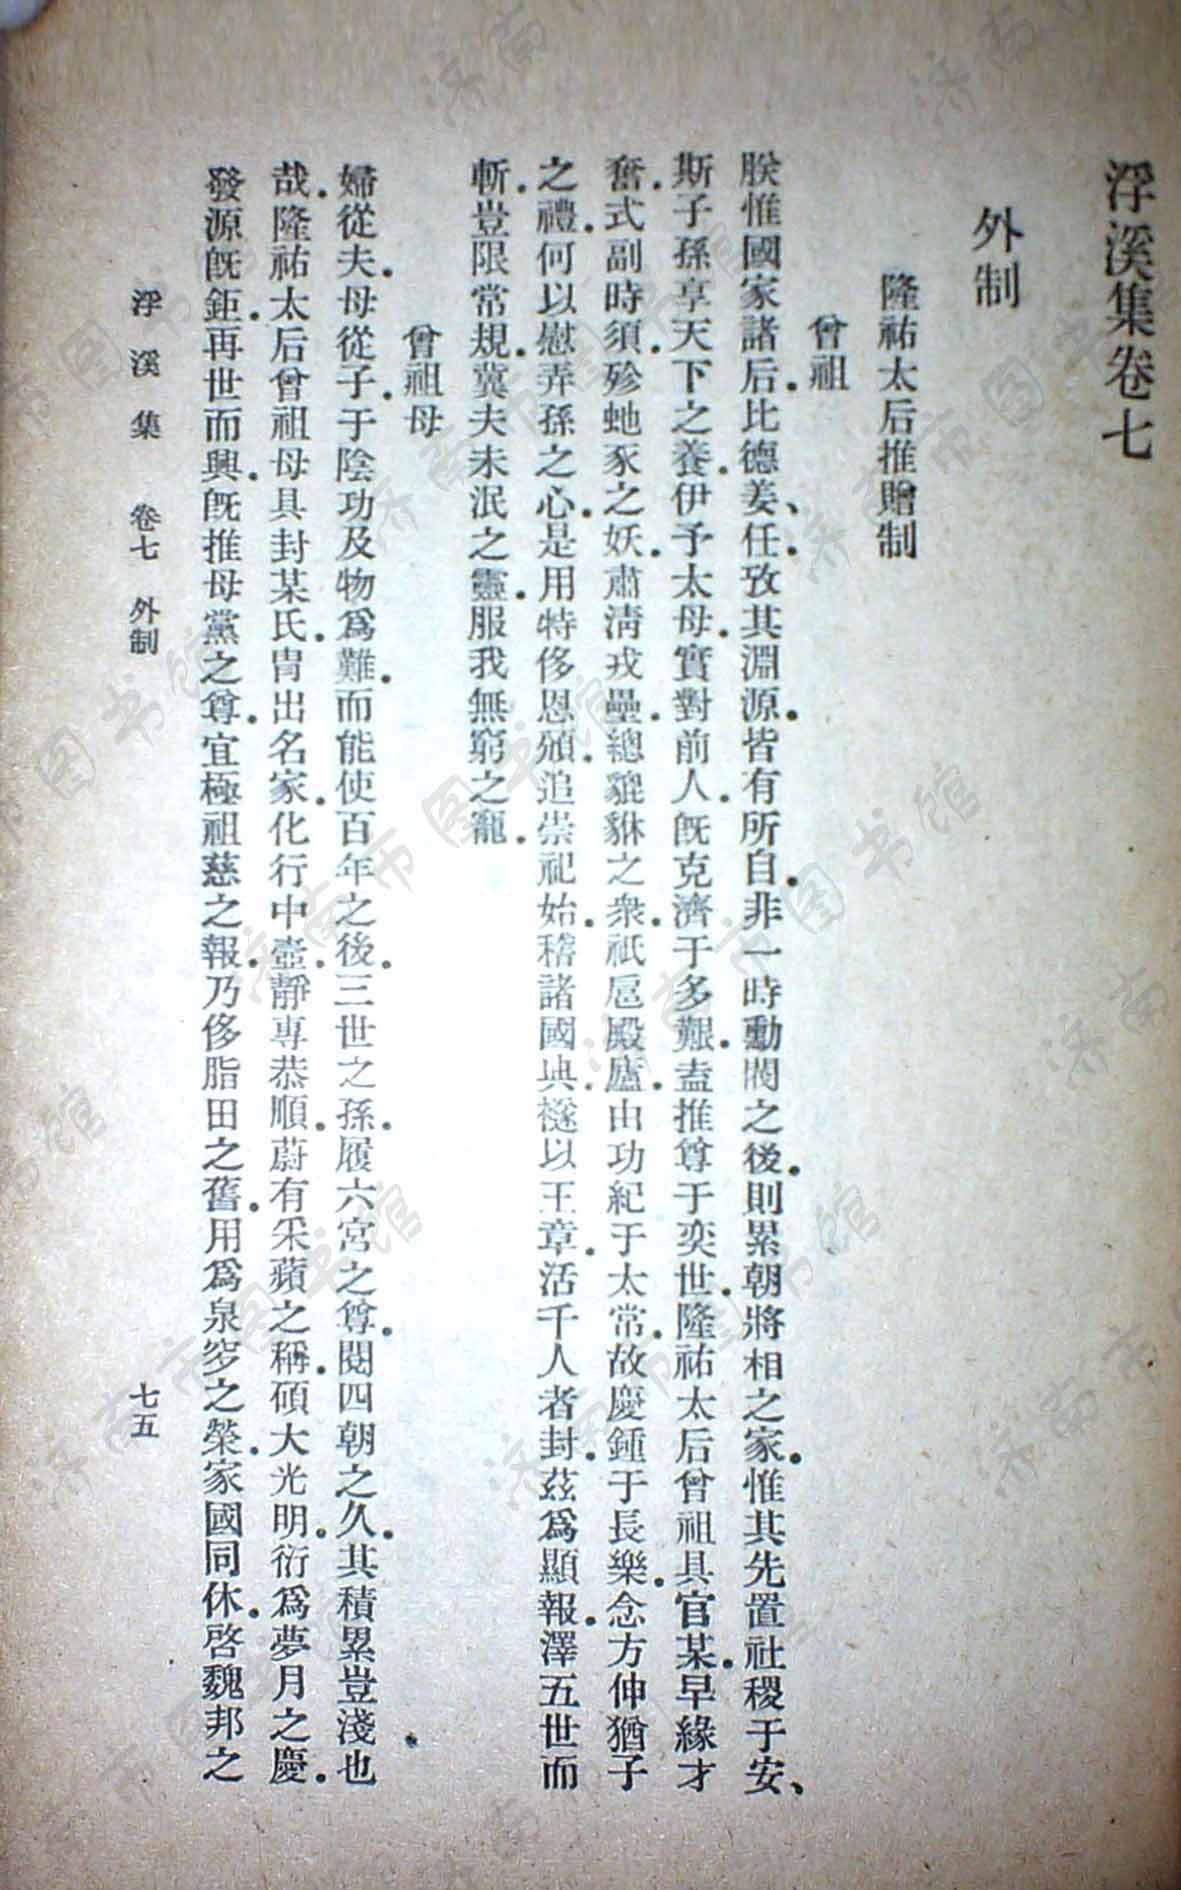 浮溪集卷七
外制
隆祐太后推贈制
曾祖
朕惟國家諸后.比德姜、任.攷其淵源.皆有所自.非一時勳閥之後.則累朝將相之家.惟其先置社稷于安、
斯子孫享天下之養.伊予太母.實對前人.旣克濟于多艱.盍推尊于奕世.隆祐太后曾祖具官某.早緣才
奮.式副時須.殄虵豕之妖.肅淸戎壘.總貔貅之衆.祇扈殿廬.由功紀于太常.故慶鍾于長樂.念方伸猶子
之禮.何以慰弄孫之心.是用特侈恩頒.追崇祀始.稽諸國典.襚以王章.活千人者封.茲爲顯報.澤五世而
斬.豈限常規.冀夫未泯之靈.服我無窮之寵.
曾祖母
婦從夫.母從子.于陰功及物爲難.而能使百年之後.三世之孫.履六宮之尊.閱四朝之久.其積累豈淺也
哉.隆祐太后曾祖母具封某氏.胄出名家.化行中壼.靜專恭順.蔚有采蘋之稱.碩大光明.衍爲夢月之慶.
發源旣鉅.再世而興.旣推母黨之尊.宜極祖慈之報.乃侈脂田之舊.用爲泉穸之榮.家國同休.啓魏邦之
浮溪集 卷七 外制 七五
济南市图书馆